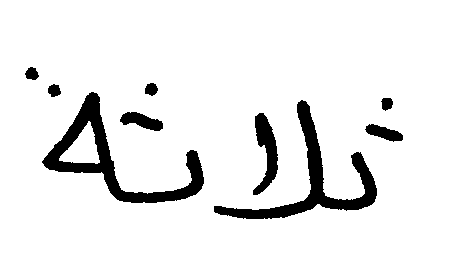 ثلاثة